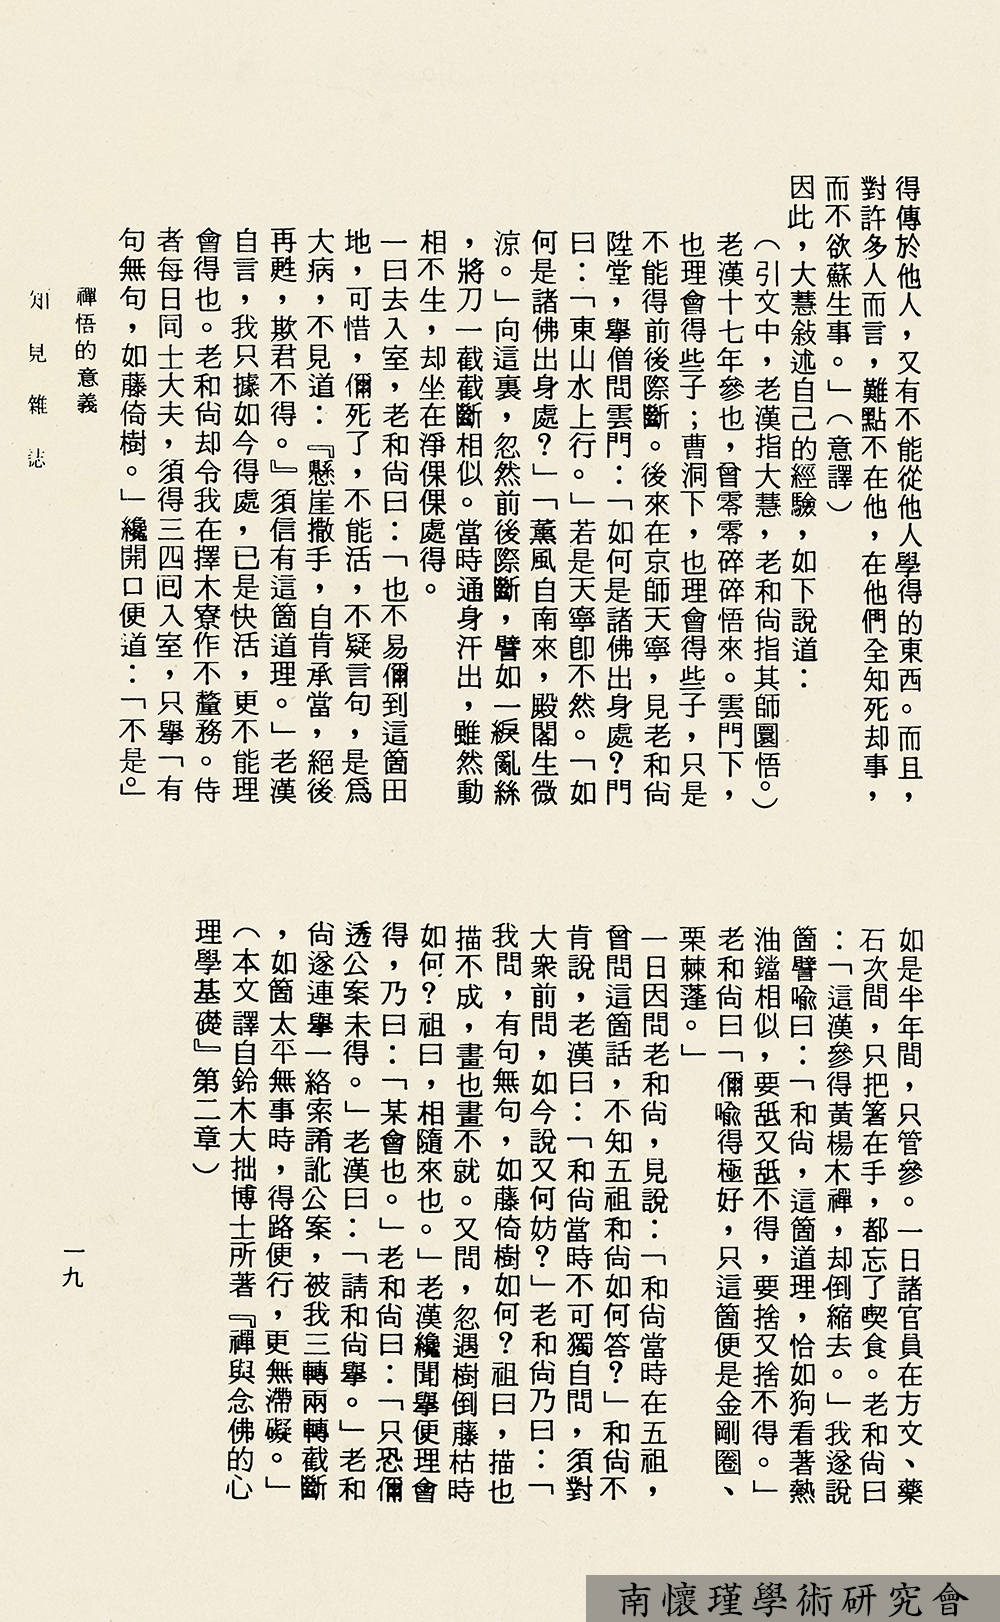 得傳於他人，又有不能從他人學得的東西。而且，
對許多人而言，難點不在他，在他們全知死却事，
而不欲蘇生事。」（意譯）
因此，大慧敍述自己的經驗，如下說道：
（引文中，老漢指大慧，老和尙指其師圜悟。）
老漢十七年參也，曾零零碎碎悟來。雲門下，
也理會得些子；曹洞下，也理會得些子，只是
不能得前後際斷。後來在京師天寧，見老和尙
陞堂，擧僧問雲門：「如何是諸佛出身處？門
曰：「東山水上行。」若是天寧卽不然。「如
何是諸佛出身處？」「薰風自南來，殿閣生微
涼。」向這裏，忽然前後際斷，譬如一綟亂絲
，將刀一截截斷相似。當時通身汗出，雖然動
相不生，却坐在淨倮倮處得。
一曰去入室，老和尙曰：「也不易儞到這箇田
地，可惜，儞死了，不能活，不疑言句，是爲
大病，不見道：『懸崖撒手，自肯承當，絕後
再甦，欺君不得。』須信有這箇道理。」老漢
自言，我只據如今得處，已是快活，更不能理
會得也。老和尙却令我在擇木寮作不釐務。侍
者每日同士大夫，須得三四囘入室，只擧「有
句無句，如藤倚樹。」纔開口便道：「不是。」
如是半年間，只管參。一日諸官員在方文、藥
石次間，只把箸在手，都忘了喫食。老和尙曰
：「這漢參得黃楊木禪，却倒縮去。」我遂說
箇譬喩曰：「和尙，這箇道理，恰如狗看著熱
油鐺相似，要舐又舐不得，要捨又捨不得。」
老和尙曰「儞喩得極好，只這箇便是金剛圈、
栗棘蓬。」
一日因問老和尙，見說：「和尙當時在五祖，
曾問這箇話，不知五祖和尙如何答？」和尙不
肯說，老漢曰：「和尙當時不可獨自問，須對
大衆前問，如今說又何妨？」老和尙乃曰：「
我問，有句無句，如藤倚樹如何？祖曰，描也
描不成，畫也畫不就。又問，忽遇樹倒藤枯時
如何？祖曰，相隨來也。」老漢纔聞擧便理會
得，乃曰：「某會也。」老和尙曰：「只恐儞
透公案未得。」老漢曰：「請和尙擧。」老和
尙遂連擧一絡索誵訛公案，被我三轉兩轉截斷
，如箇太平無事時，得路便行，更無滯礙。」
（本文譯自鈴木大拙博士所著『禪與念佛的心
理學基礎』第二章）
禪悟的意義
知見雜誌
一九
南懷瑾學術硏究會